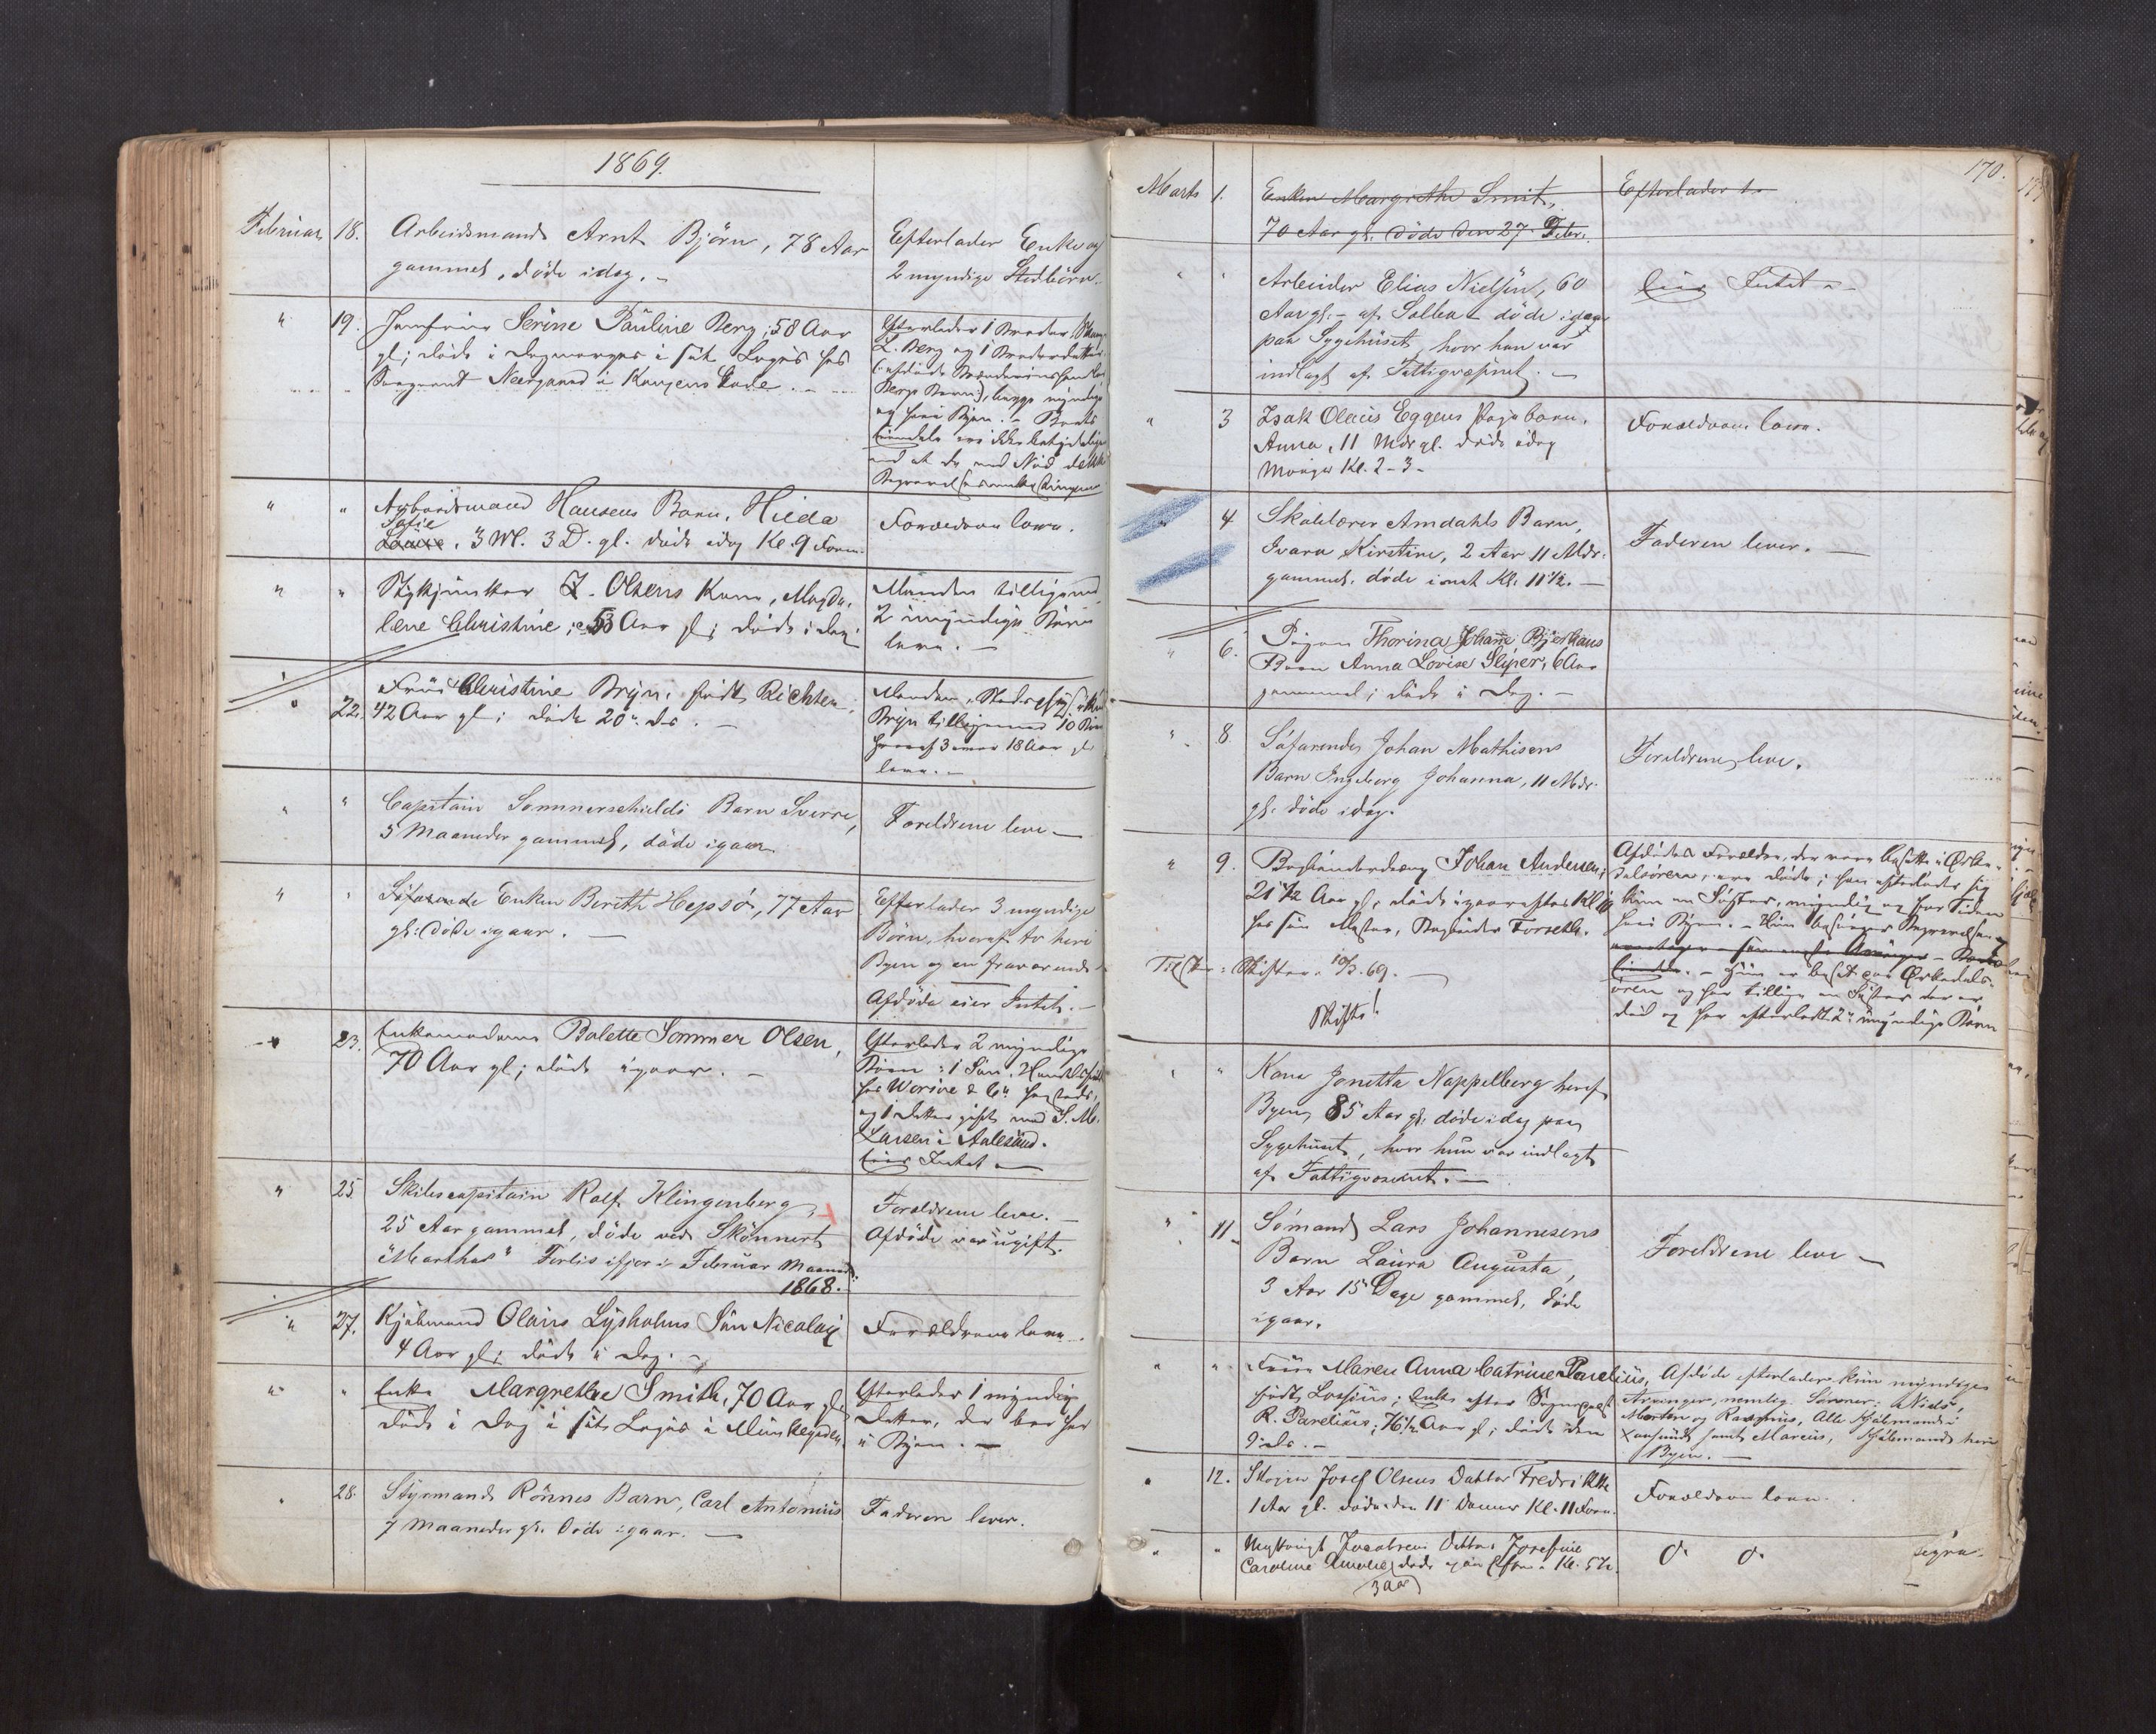 1869.
Februar 18. Arbeidsmand Arnt Björn, 78 Aar
gammel, döde idag. -
Efterlader Enke og
2 myndige Stedbörn.
" 19. Jomfrue Serine Pauline Berg, 58 Aar
gl; döde i Dagmorges i sit Logis hos
Sergeant Neergaard i Kongens Gade. -
Efterlader 1 Broder
L. Berg og 1 Broderdatter
begge myndige
og her i Byen. -
" " Arbeidsmand Hansens Barn, Hilda
Sofie
Louise, 3 M. 3 D. gl. döde idag Kl. 9 Form.
Forældrene leve.
" " Stykjunker Z. Olsens Kone, Magda-
lene Christine, 53 Aar gl; döde i Dag.
Manden tilligemed
2 umyndige Börn
leve. -
" 22. Frue Christine Bryn, födt Richter,
42 Aar gl; döde 20de ds. -
Manden,
Bryn tilligemed 10 Börn
hvoraf 3 over 18 Aar gl
leve. -
" " Capitain Sommerschields Barn Sverre,
5 Maaneder gammel, döde igaar
Foreldrene leve -
" " Söfarende Enken Bereth Hepsö, 77 Aar
gl: döde igaar. -
Efterlader 3 myndige
Börn, hvoraf to heri
Byen og en fraværende
Afdöde eier Intet. -
" 23. Enkemadame Bolette Sommer Olsen,
70 Aar gl; döde igaar. -
Efterlader 2 myndige
Börn: 1 Sön,
hos Worsöe & Co
og 1 Datter gift med S. M.
Larsen i Aalesund.
Eier Intet -
" 25 Skibscapitain Rolf Klingenberg,
25 Aar gammel, döde ved Skönnert
"Marthas" Forlis ifjor i Februar Maaned
1868.
Foreldrene leve. -
Afdöde var ugift.
" 27. Kjöbmand Olaus Lysholms Sön Nicolay
4 Aar gl; döde i Dag. -
Forældrene leve.
" " Enke Margrethe Smith, 70 Aar gl
döde i Dag i sit Logis i Munkegaden.
Efterlader 1 myndig
Datter, der bor her
i Byen. -
" 28. Styrmand Rönnes Barn, Carl Antonius
7 Maaneder gl. Döde igaar. -
Faderen lever.
170.
Marts 1. Enken Margrethe Smit,
70 Aar gl. döde den 27. Febr.
Efterlader 1
" " Arbeider Elias Nielsen, 60
Aar gl. - af Solbu - döde igaar
paa Sygehuset, hvor han var
indlagt af Fattigvæsnet. -
Eier Intet -
" 3 Isak Olaus Eggens Pagebarn,
Anna, 11 Mdr gl. döde idag
Morges Kl. 2-3-
Forældrene leve.
" 4 Skolelærer Amdahls Barn,
Ivara Kirstine, 2 Aar 11 Mdr.
gammel. döde inat Kl. 11 1/2. -
Faderen lever. -
" 6. Pigen Thorina Johanne Bjerkans
Barn Anna Lovise Sliper, 6 Aar
gammel; döde i Dag. -
" 8 Söfarende Johan Mathisens
Barn Ingeborg Johanna, 11 Mdr.
gl. döde idag.
Foreldrene leve.
" 9. Bogbinderdreng Johan Andersen,
21 1/2 Aar gl, döde igaaraftes Kl
hos sin Mester, Bogbinder Forseth.
Skiftet 10/3. 69. -
Skifte!
Afdödes Forældre, der vare bosatte i Orke-
dalsören, ere döde; han efterlader sig
kun en Söster, myndig og for Tiden
her i Byen. -
- Hun er bosat paa Orkedals-
ören og har tillige en Söster der er
död og har efterladt 2 umyndige Börn
" " Kone Jonetta Nappelberg heraf
Byen, 85 Aar gl: döde idag paa
Sygehuset, hvor hun var indlagt
af Fattigvæsenet. -
" 11 Sömand Lars Johannesens
Barn Laura Augusta,
3 Aar 15 Dage gammel, döde
igaar.
Foreldrene leve -
" " Fru Maren Anna Catrine Parelius,
födt Lossius; Enke efter Sognepræst
R. Parelius; 76 1/2 Aar gl; döde den
9de ds. -
Afdöde efterlader kun myndige
Arvinger, nemlig Sönner: Niels,
Morten og Rasmus, Alle Kjöbmænd i
Xansund samt Marcus, Kjöbmand her i
Byen. -
" 12. Skoger Josef Olsens Datter Fredrikke
1 Aar gl. döde den 11 Dennes Kl. 11 Form.
Forældrene leve.
" " Jacobsens Datter Josefine
Caroline Amalie döde igaar Efterm. Kl. 5 1/2.
3 Aar
d. d.